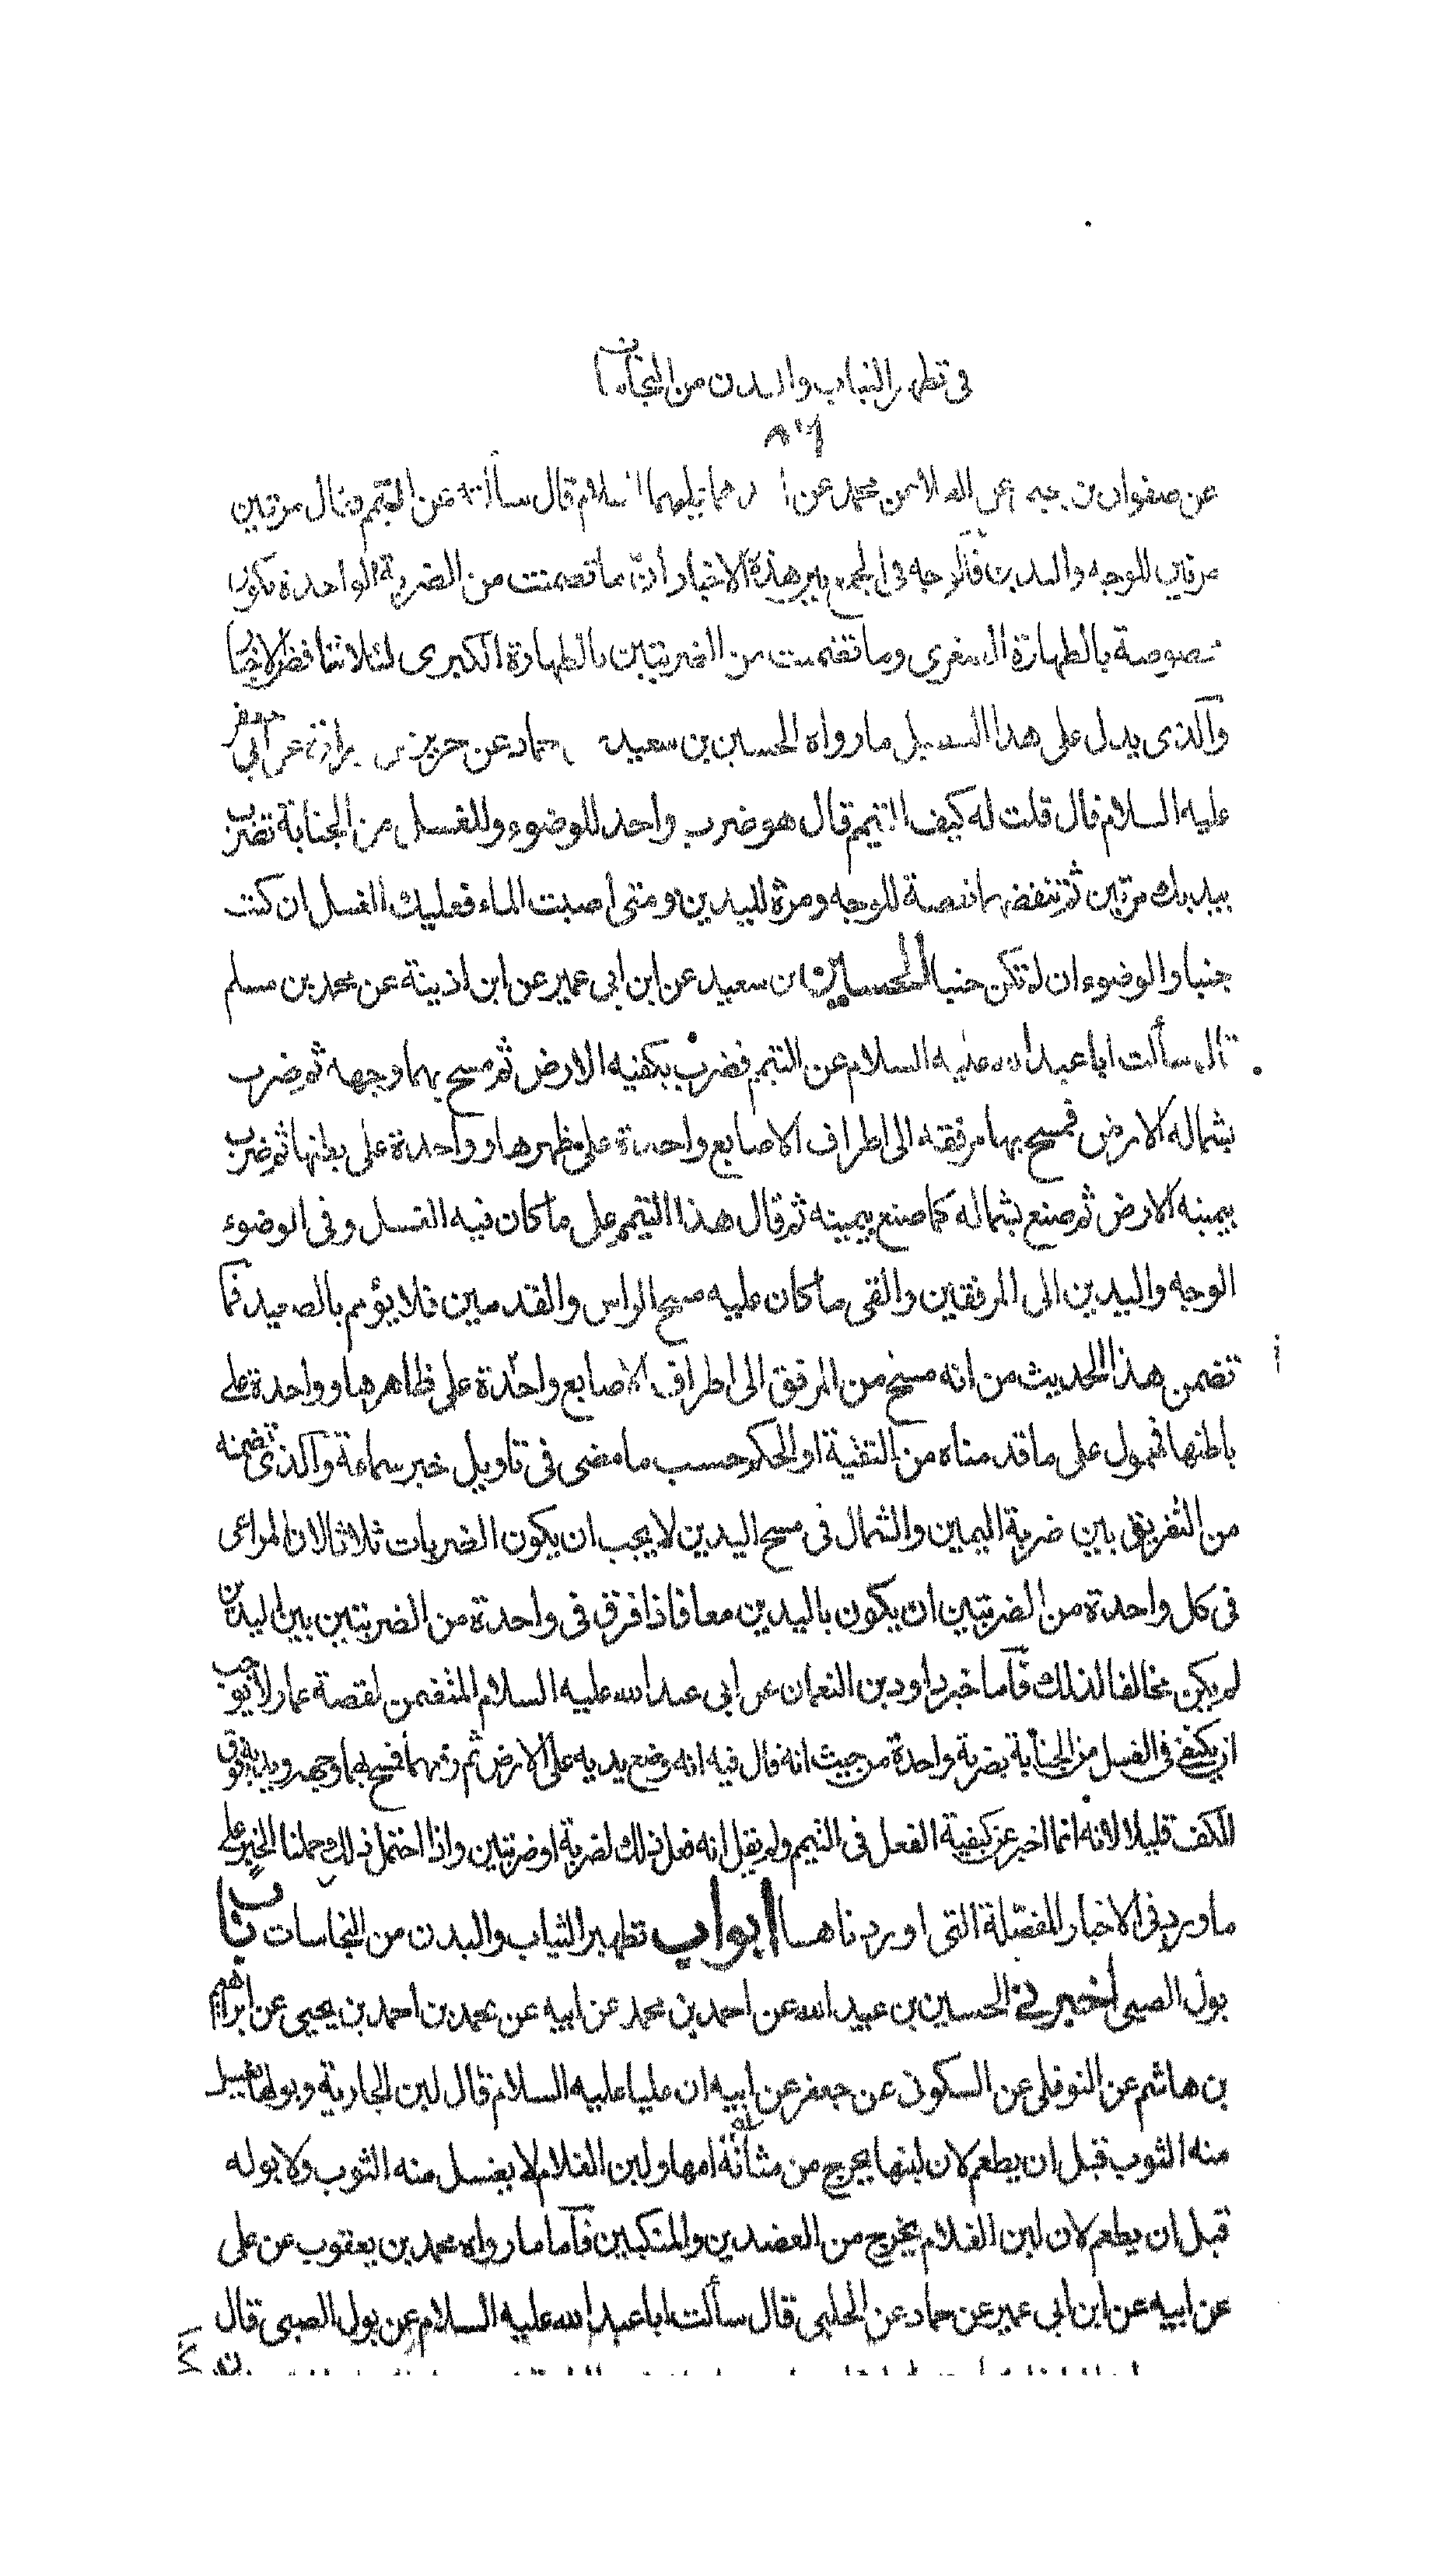 فى تطهير الثياب والبدن من النجاسات
عن صفوان بن عن العلا عن محمد عن عليهما السلام قال سألته عن التيمم فقال مرتين
مرتين للوجه واليدين فالوجه فى الجمع بين هذه الاخبار ان ما تضمنت من الضربة الواحدة يكون
مخصوصة بالطهارة الصغرى وما تضمنت من الضربتين بالطهارة الكبرى لئلا تتناقض الاخبار
والذى يدل على هذا التفصيل ما رواه الحسين بن سعيد حماد عن حريز عن زرارة عن ابى جعفر
عليه السلام قال قلت له كيف التيمم قال هو ضرب واحد للوضوء وللغسل من الجنابة تضرب
بيديك مرتين ثم تنفضهما نفضة للوجه ومرة لليدين ومتى اصبت الماء فعليك الغسل ان كنت
جنبا والوضوء ان لم تكن جنبا الحسين بن سعيد عن ابن ابى عمير عن ابن اذينة عن محمد بن مسلم
قال سألت ابا عبدالله عليه السلام عن التيمم فضرب بكفيه الارض ثم مسح بهما وجهه ثم ضرب
بشماله الارض فمسح بها مرفقه الى اطراف الاصابع واحدة على ظهرها وواحدة على بطنها ثم ضرب
بيمينه الارض ثم صنع بشماله كما صنع بيمينه ثم قال هذا التيمم على ما كان فيه الغسل وفى الوضوء
الوجه واليدين الى المرفقين والقى ما كان عليه مسح الراس والقدمين فلا يؤمم بالصعيد فما
تضمن هذا الحديث من انه مسح من المرفق الى اطراف الاصابع واحدة على ظاهرها وواحدة على
باطنها فمحمول على ما قدمناه من التقية او الحكم حسب ما مضى فى تاويل خبر سماعة والذى تضمنه
من التفريق بين ضربة اليمين والشمال فى مسح اليدين لا يجب ان يكون الضربات ثلاثا لان المراعى
فى كل واحدة من الضربتين ان يكون باليدين معا فاذا فرق فى واحدة من الضربتين بين اليدين
لم يكن مخالفا لذلك فأما خبر داود بن النعمان عن ابى عبدالله عليه السلام المتضمن لقصة عمار لا يوجب
ان يكتفى فى الغسل من الجنابة بضربة واحدة من حيث انه قال فيه انه وضع يديه على الارض ثم رفعهما فمسح بهما وجهه ويديه فوق
الكف قليلا لانه انما اخبر عن كيفية الفعل فى التيمم ولم يقل انه فعل ذلك لضربة او ضربتين واذا احتمل ذلك حملنا الخبر على
ما ورد فى الاخبار المفصلة التى اوردناها ابواب تطهير الثياب والبدن من النجاسات باب
بول الصبى أخبرنى الحسين بن عبيد الله عن احمد بن محمد عن ابيه عن محمد بن احمد بن يحيى عن ابراهيم
بن هاشم عن النوفلى عن السكونى عن جعفر عن ابيه ان عليا عليه السلام قال لبن الجارية وبولها يغسل
منه الثوب قبل ان يطعم لان لبنها يخرج من مثانة امها ولبن الغلام لا يغسل منه الثوب ولا بوله
قبل ان يطعم لان لبن الغلام يخرج من العضدين والمنكبين فأما ما رواه محمد بن يعقوب عن على
عن ابيه عن ابن ابى عمير عن حماد عن الحلبى قال سألت ابا عبدالله عليه السلام عن بول الصبى قال